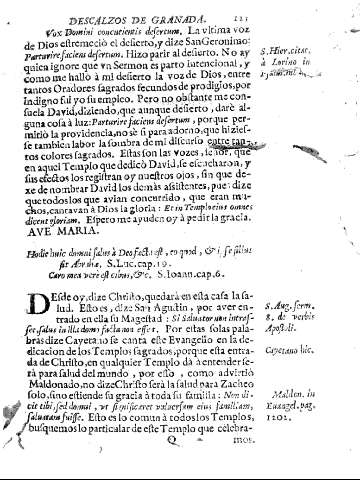 DESCALZOS DE GRANADA. 121
Vox Domini concutientis desertum. La vltima voz
de Dios estremeciò el desierto, y dize San Geronimo:
Parturire faciens desertum. Hizo parir al desierto. No ay
quien ignore que vn Sermon es parto intencional, y
como me hallo à mi desierto la voz de Dios, entre
tantos Oradores sagrados fecundos de prodigios, por
indigno fui yo su empleo. Pero no obstante me con-
suela David, diziendo, que aunque desierto, darè al-
guna cosa à luz: Parturire faciens desertum, porque per-
mitiò la providencia, no sè si para adorno, que hizies-
se tambien labor la sombra de mi discurso entre tan-
tos colores sagrados. Estas son las vozes, señor, que
en aquel Templo que dedicò David, se escucharon, y
sus efectos los registran oy nuestros ojos, sin que de-
xe de nombrar David los demàs assistentes, pues dize
que todos los que avian concurrido, que eran mu-
chos, cantavan à Dios la gloria: Et in Templo eius omnes
dicent gloriam. Espero me ayuden oy à pedir la gracia.
AVE MARIA.
S. Hier. citat.
à Lorino in
Psalm.
Hodie huic domui salus à Deo facta est, eo quod, & ipse filius
sit Abrahæ, S. Luc. cap. 19.
Caro mea verè est cibus, &c. S. Ioann. cap. 6.
Desde oy, dize Christo, quedarà en esta casa la sa-
lud. Esto es, dize San Agustin, por aver en-
trado en ella su Magestad: Si Salvator non intras-
set, salus in illa domo facta non esset. Por estas solas pala-
bras dize Cayetano se canta este Evangelio en la de-
dicacion de los Templos sagrados, porque esta entra-
da de Christo, en qualquier Templo dà à entender se-
rà para salud del mundo, por esso, como advirtiò
Maldonado, no dize Christo serà la salud para Zacheo
solo, sino estiende su gracia à toda su familia: Non di-
cit tibi, sed domui, ut significaret universam eius familiam,
salvatam fuisse. Esto es lo comun à todos los Templos,
busquemos lo particular de este Templo que celebra-
S. Aug. serm.
8. de verbis
Apostoli.
Cayetano hic.
Maldon. in
Euangel. pag.
1202.
Q mos.